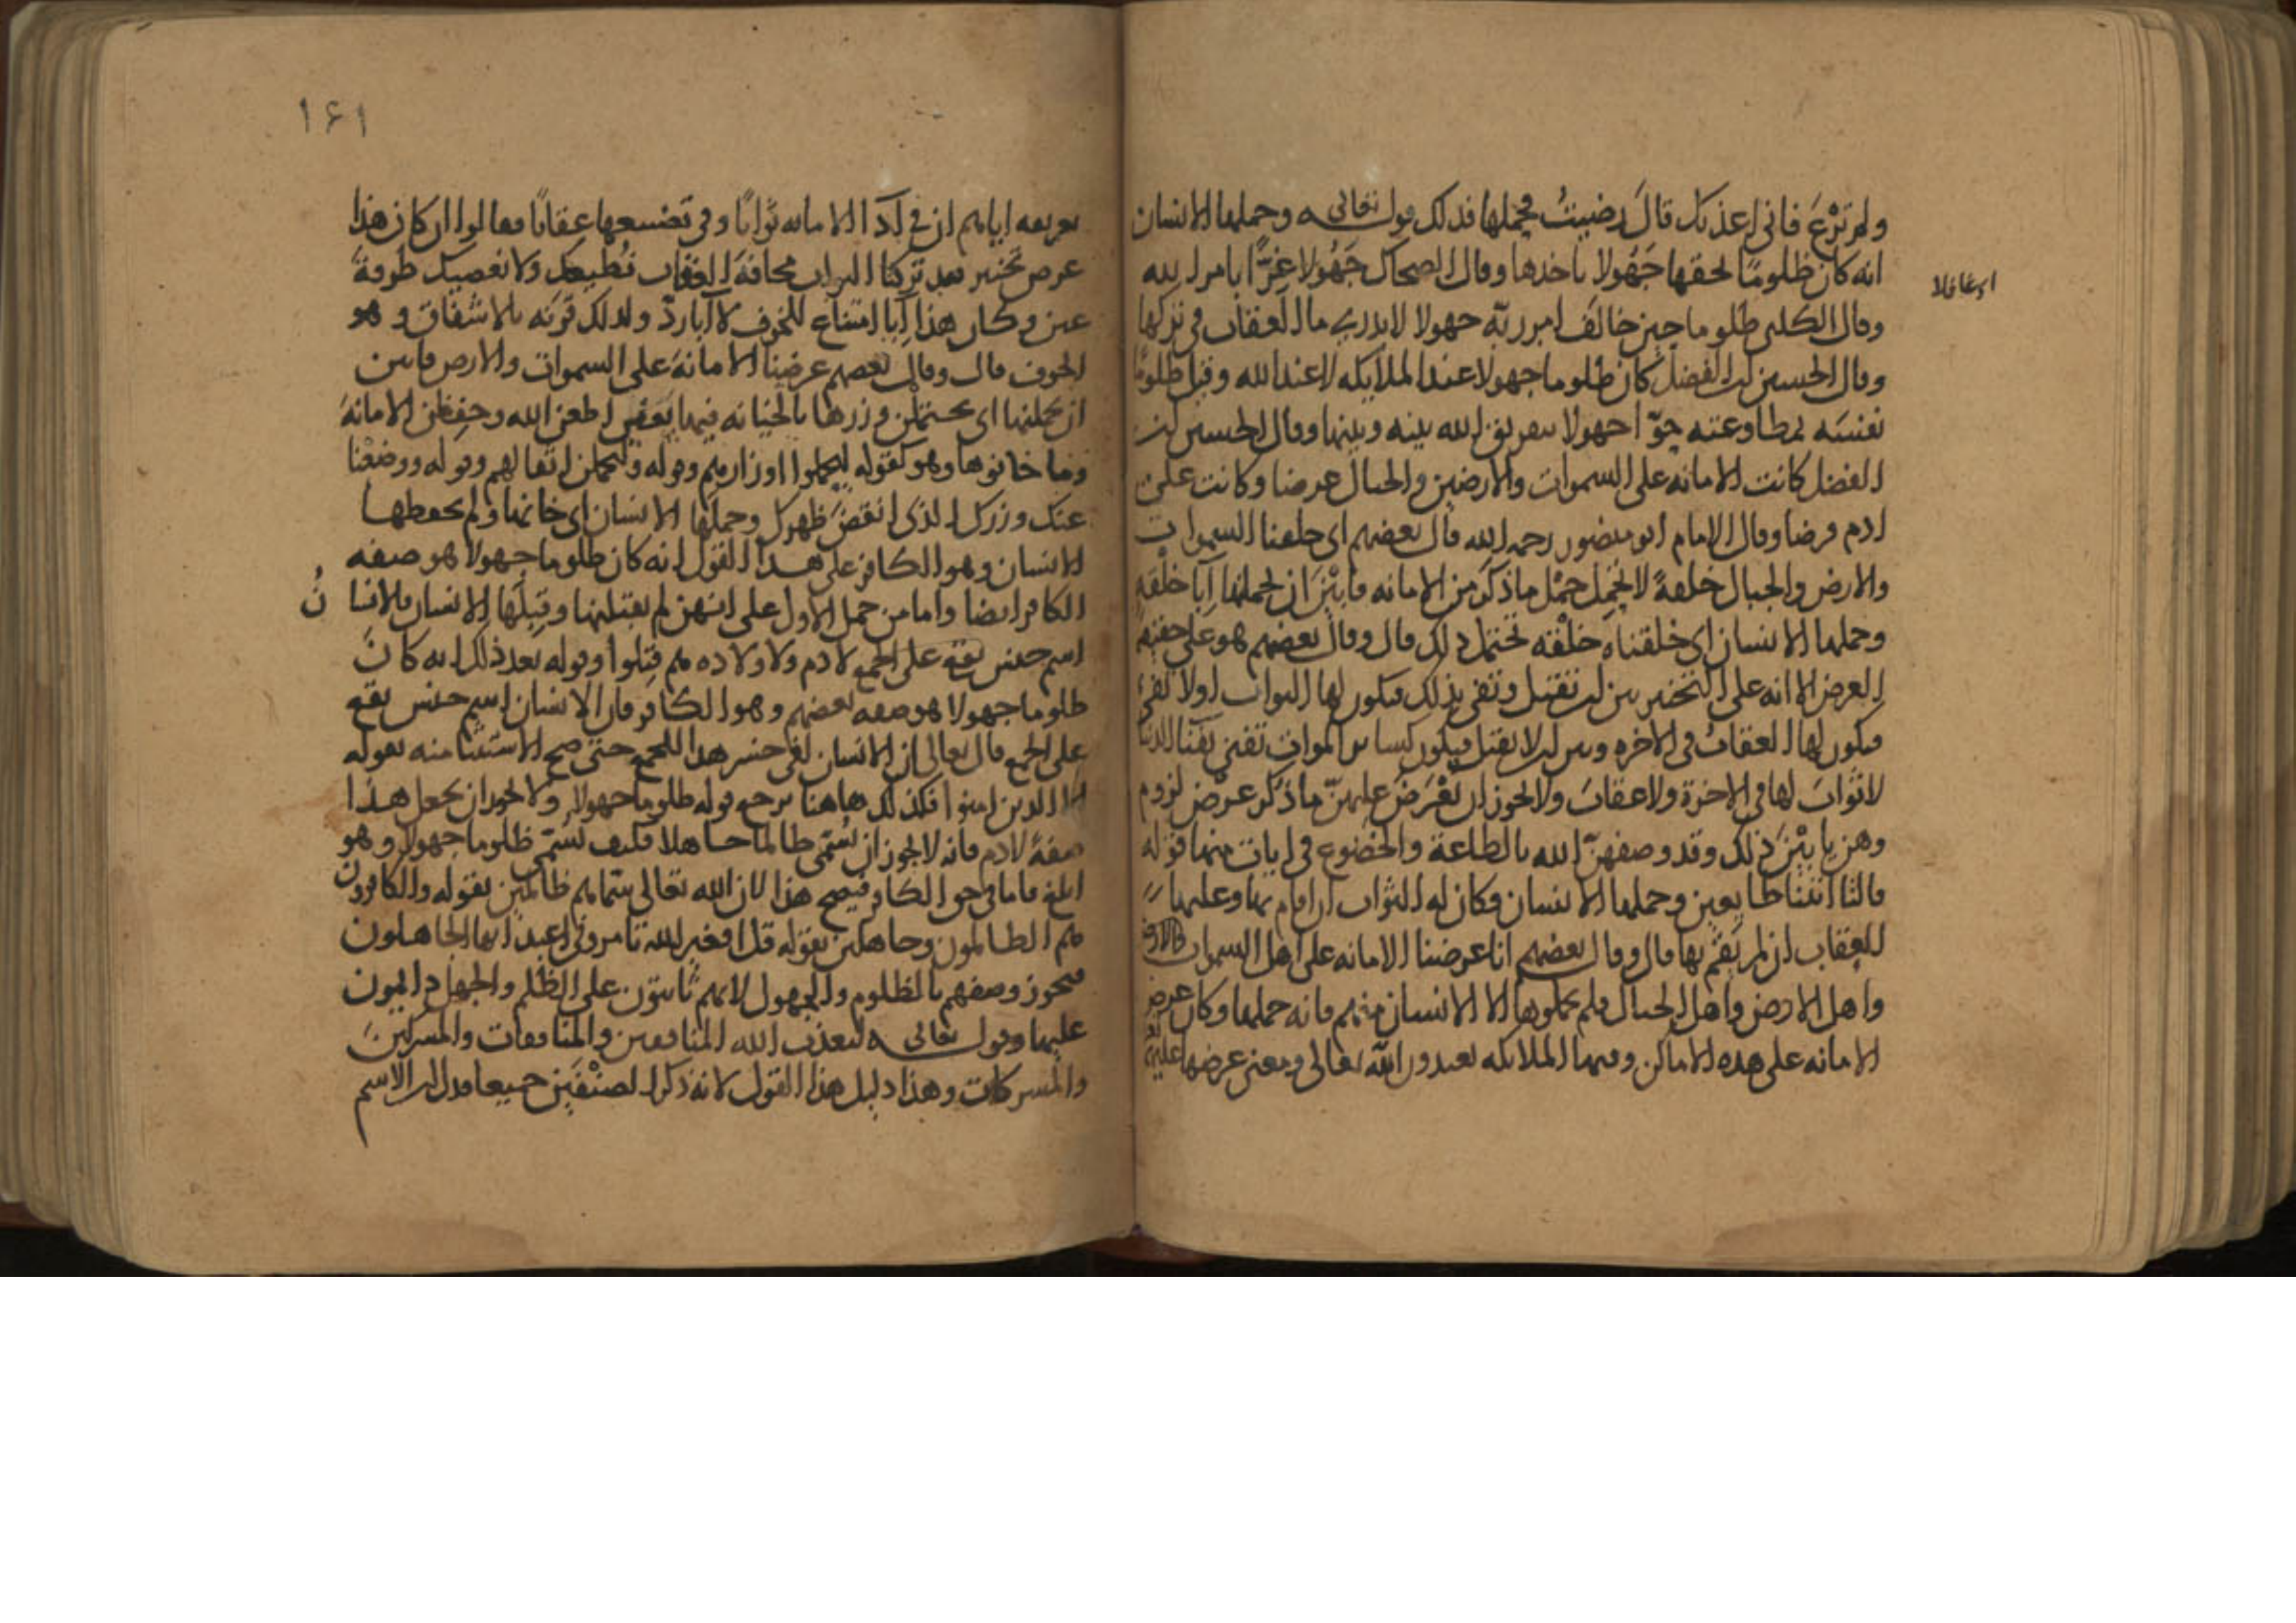 ولم ترع فاني اعذبك قال رضيت فحملها فذلك قوله تعالى وحملها الانسان
انه كان ظلوما لحقها جهولا باخذها وقال الضحاك جهولا غرا بامر الله
اى غافلا
وقال الكلبى ظلوما حين خالف امر ربه جهولا لا يدرى ما العقاب فى تركها
وقال الحسين بن الفضل كان ظلوما جهولا عند الملايكه لا عند الله وقيل ظلوما
نفسه بمطاوعته حوا جهولا بتفريق الله بينه وبينها وقال الحسين بن
الفضل كانت الامانه على السموات والارضين والجبال عرضا وكانت على
ادم فرضا وقال الامام ابو منصور رحمه الله قال بعضهم اى خلقنا السموات
والارض والجبال خلقة لا تحمل حمل ما ذكر من الامانه فابين ان يحملنها ابا خلقه
وحملها الانسان اى خلقناه خلقه تحتمل ذلك قال وقال بعضهم هو على حقيقه
العرض الا انه على التخيير بين ان تقبل وتفى بذلك فيكون لها الثواب او لا تفى
فيكون لها العقاب فى الاخره وبين ان لا تقبل فيكون كساير الموات تفنى بفنا الدنيا
لا ثواب لها فى الاخرة ولا عقاب ولا يجوز ان يعرض عليهن ما ذكر عرض لزوم
وهن يابين ذلك وقد وصفهن الله بالطاعة والخضوع فى ايات منها قوله
قالتا اتينا طايعين وحملها الانسان فكان له الثواب ان قام بها وعليها
العقاب ان لم يقم بها قال وقال بعضهم انا عرضنا الامانه على اهل السموات والارض
واهل الارض واهل الجبال فلم يحملوها الا الانسان منهم فانه حملها وكان عرض
الامانه على هذه الاماكن وفيها الملايكه يعبدون الله تعالى ومعنى عرضها عليهن
١٤١
تعريفه اياهم ان فى ادا الامانه ثوابا وفى تضييعها عقابا فقالوا ان كان هذا
عرض تخيير فقد تركنا الثواب مخافة العقاب نطيعك ولا نعصيك طرفة
عين فكان هذا ابا امتناع للخوف لا ابا رد ولذلك قرنه بالاشفاق وهو
الخوف قال وقال بعضهم عرضنا الامانة على السموات والارض فابين
ان يحملنها اى يحتملن وزرها بالخيانه فيها يعنى اطعن الله وحفظن الامانة
وما خانوها وهو كقوله ليحملوا اوزارهم وقوله وليحملن اثقالهم وقوله ووضعنا
عنك وزرك الذى انقض ظهرك وحملها الانسان اى خانها ولم يحفظها
الانسان وهو الكافر على هذا القول انه كان ظلوما جهولا هو صفه
الكافر ايضا واما من حمل الاول على انهن لم يقبلنها وقبلها الانسان فالانسا ن
اسم جنس يقع على الجمع لادم ولاولاده هم قبلوا وقوله بعد ذلك انه كان
ظلوما جهولا هو صفه بعضهم وهو الكافر فان الانسان اسم جنس يقع
على الجمع قال تعالى ان الانسان لفى خسر هذا للجمع حتى صح الاستثنا منه بقوله
الا الذين امنوا فكذلك هاهنا يرجع قوله ظلوما جهولا ولا يجوز ان يجعل هذا
صفة لادم فانه لا يجوز ان يسمى ظالما جاهلا فكيف يسمى ظلوما جهولا وهو
ابلغ فاما فى حق الكافر فيصح هذا لان الله تعالى سماهم ظالمين بقوله والكافرون
هم الظالمون وجاهلين بقوله قل افغير الله تامرونى اعبد ايها الجاهلون
فيجوز وصفهم بالظلوم والجهول لانهم ثابتون على الظلم والجهل دايمون
عليها وقوله تعالى ليعذب الله المنافقين والمنافقات والمشركين
والمشركات وهذا دليل هذا القول لانه ذكر الصنفين جميعا فدل ان الاسم